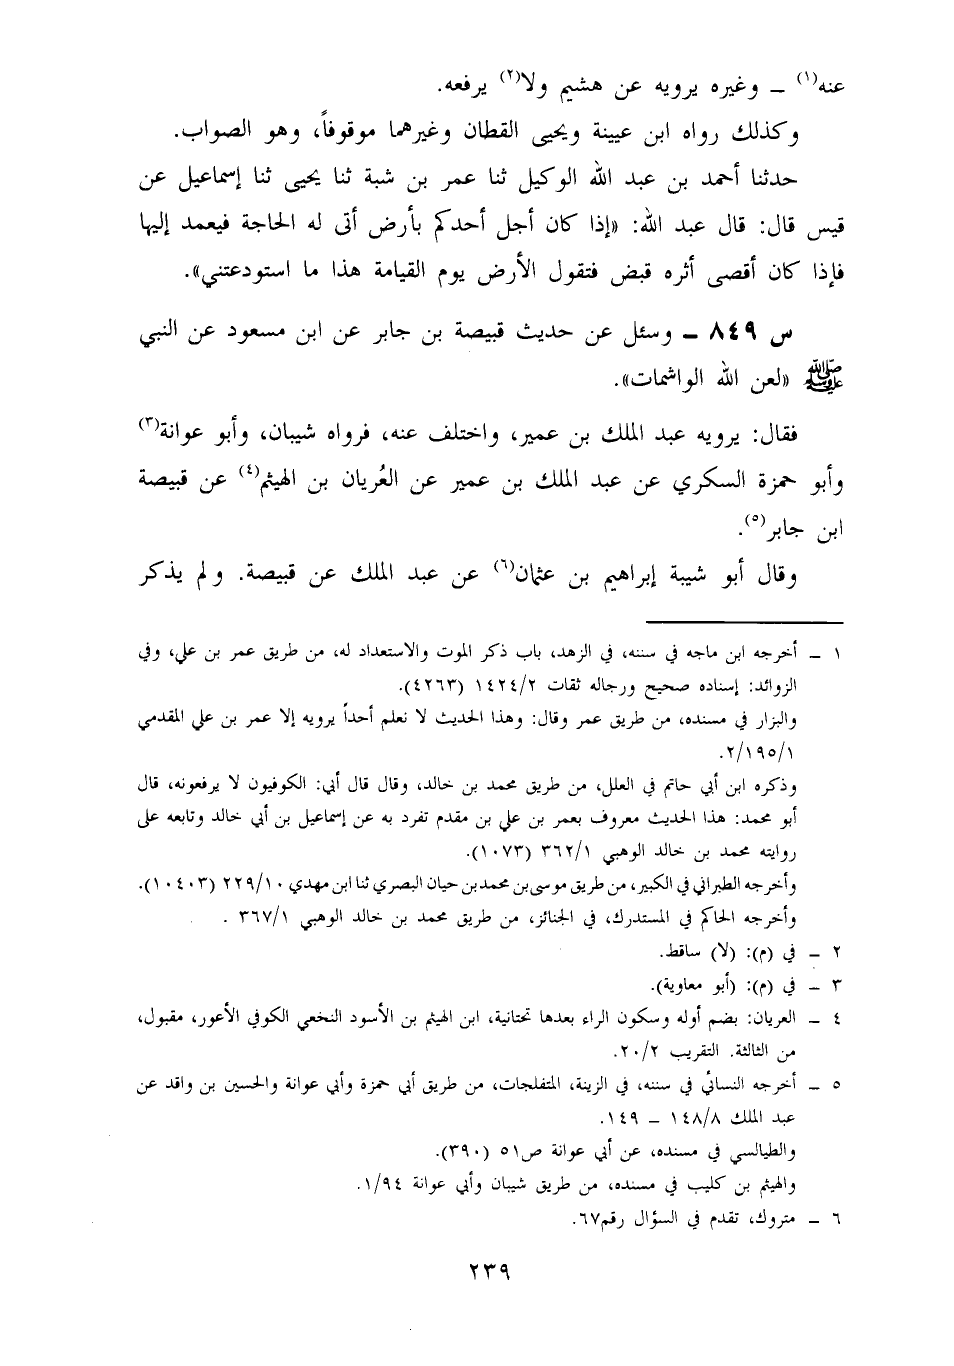 عنه(١) – وغيره يرويه عن هشيم ولا(٢) يرفعه.
وكذلك رواه ابن عيينة ويحيى القطان وغيرهما موقوفاً، وهو الصواب.
حدثنا أحمد بن عبد الله الوكيل ثنا عمر بن شبة ثنا يحيى ثنا إسماعيل عن
قيس قال: قال عبد الله: «إذا كان أجل أحدكم بأرض أتى له الحاجة فيعمد إليها
فإذا كان أقصى أثره قبض فتقول الأرض يوم القيامة هذا ما استودعتني».
س ٨٤٩ – وسئل عن حديث قبيصة بن جابر عن ابن مسعود عن النبي
ﷺ «لعن الله الواشمات».
فقال: يرويه عبد الملك بن عمير، واختلف عنه، فرواه شيبان، وأبو عوانة(٣)
وأبو حمزة السكري عن عبد الملك بن عمير عن العُريان بن الهيثم(٤) عن قبيصة
ابن جابر(٥).
وقال أبو شيبة إبراهيم بن عثمان(٦) عن عبد الملك عن قبيصة. ولم يذكر
١ – أخرجه ابن ماجه في سننه، في الزهد، باب ذكر الموت والاستعداد له، من طريق عمر بن علي، وفي
الزوائد: إسناده صحيح ورجاله ثقات ١٤٢٤/٢ (٤٢٦٣).
والبزار في مسنده، من طريق عمر وقال: وهذا الحديث لا نعلم أحداً يرويه إلا عمر بن علي المقدمي
٢/١٩٥/١.
وذكره ابن أبي حاتم في العلل، من طريق محمد بن خالد، وقال قال أبي: الكوفيون لا يرفعونه، قال
أبو محمد: هذا الحديث معروف بعمر بن علي بن مقدم تفرد به عن إسماعيل بن أبي خالد وتابعه على
روايته محمد بن خالد الوهبي ٣٦٢/١ (١٠٧٣).
وأخرجه الطبراني في الكبير، من طريق موسى بن محمد بن حيان البصري ثنا ابن مهدي ٢٢٩/١٠ (١٠٤٠٣).
وأخرجه الحاكم في المستدرك، في الجنائز، من طريق محمد بن خالد الوهبي ٣٦٧/١ .
٢ – في (م): (لا) ساقط.
٣ – في (م): (أبو معاوية).
٤ – العريان: بضم أوله وسكون الراء بعدها تحتانية، ابن الهيثم بن الأسود النخعي الكوفي الأعور، مقبول،
من الثالثة. التقريب ٢٠/٢.
٥ – أخرجه النسائي في سننه، في الزينة، المتفلجات، من طريق أبي حمزة وأبي عوانة والحسين بن واقد عن
عبد الملك ١٤٨/٨ – ١٤٩.
والطيالسي في مسنده، عن أبي عوانة ص٥١ (٣٩٠).
والهيثم بن كليب في مسنده، من طريق شيبان وأبي عوانة ١/٩٤.
٦ – متروك، تقدم في السؤال رقم٦٧.
٢٣٩